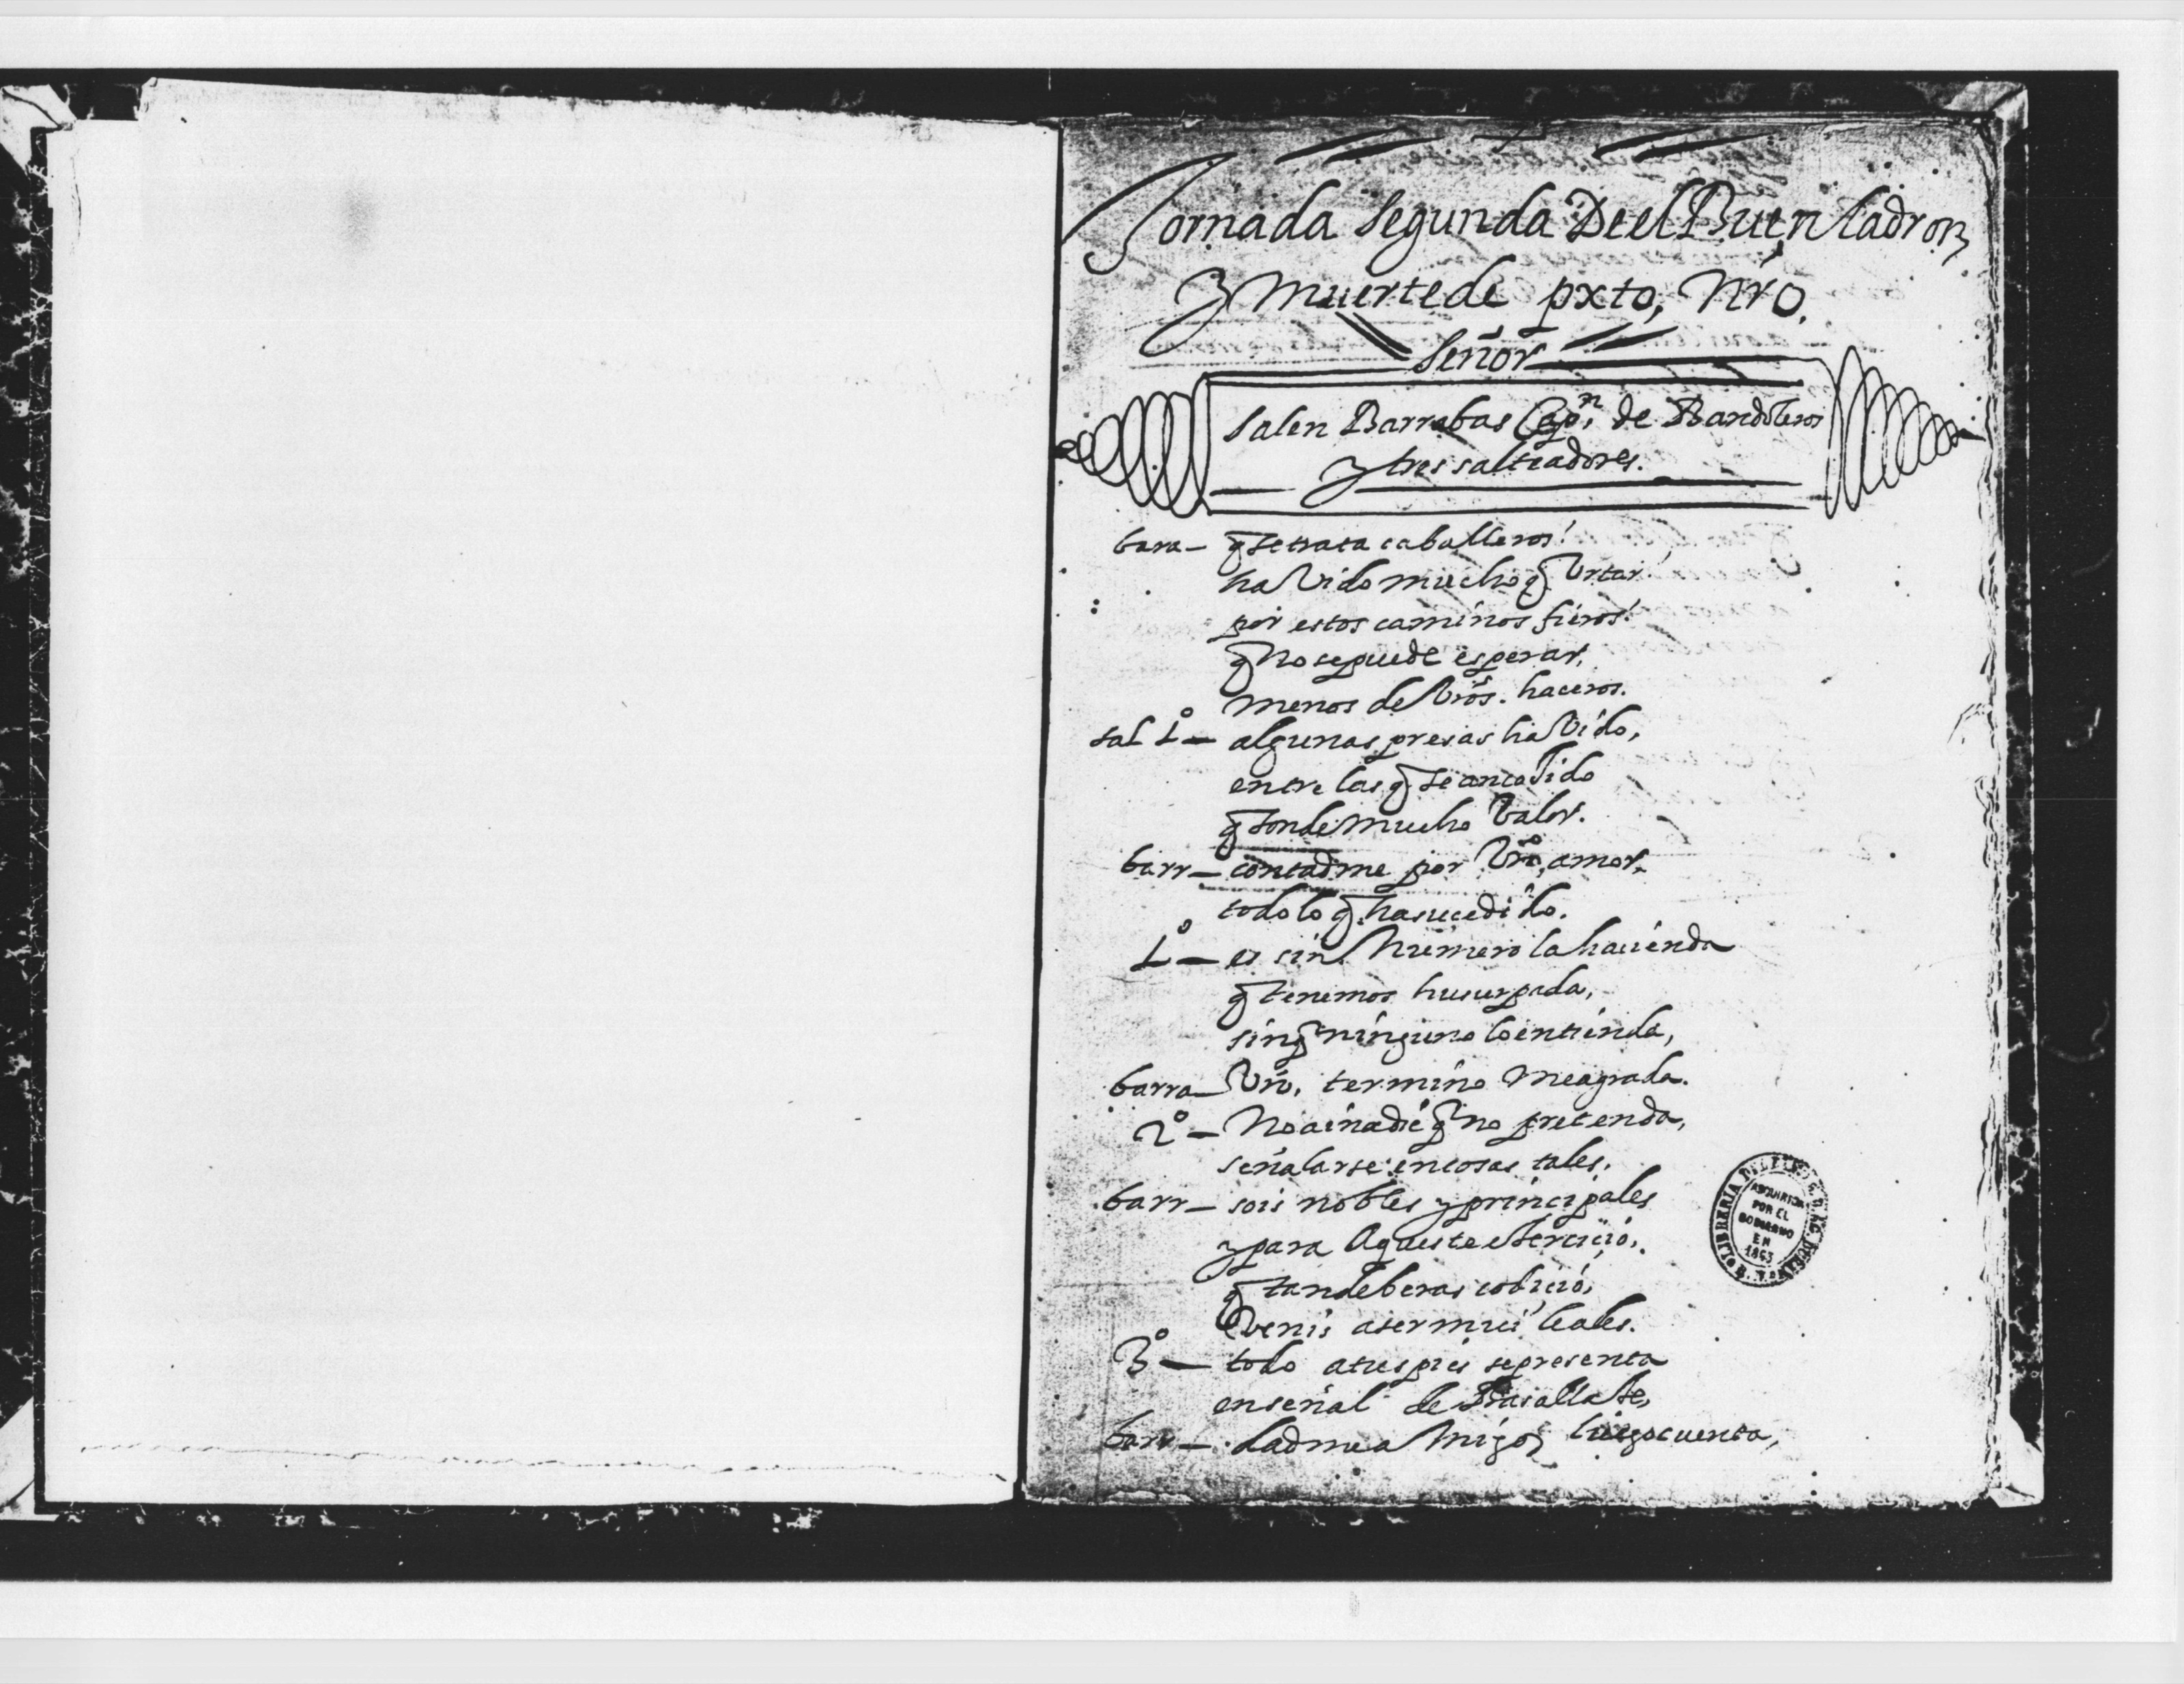 Jornada segunda De el Buen ladron
y muerte de pxto, Nro.
Señor
Salen Barrabas Capn. de Bandoleros
y tres salteadores.
bara- q̃ se trata caballeros!
ha Vido mucho q̃ Urtar!
por estos caminos fieros!
q̃ no se puede esperar,
menos de Vros. haceros.
sal 1º- algunas presas ha Vido,
entre las q̃ se an cojido
q̃ son de mucho Valor.
barr- contadme por Vro, amor,
todo lo q̃ ha sucedido.
1º- es sin Numero la hacienda
q̃ tenemos husurpada,
sin q̃ ninguno lo entienda,
barra- Vro, termino me agrada.
2º- No ai nadie q̃ no pretenda,
señalarse en cosas tales.
barr- sois nobles y principales
y para Aqueste exercicio,
q̃ tan de beras codicio,
Venis a ser mui leales.
3º- todo a tus pies se presenta
en señal de Vasallaje,
barr- dadme a Migos luego cuenta,
LIBRERIA
ADQUIRIDA
POR EL
GOBIERNO
EN
1863